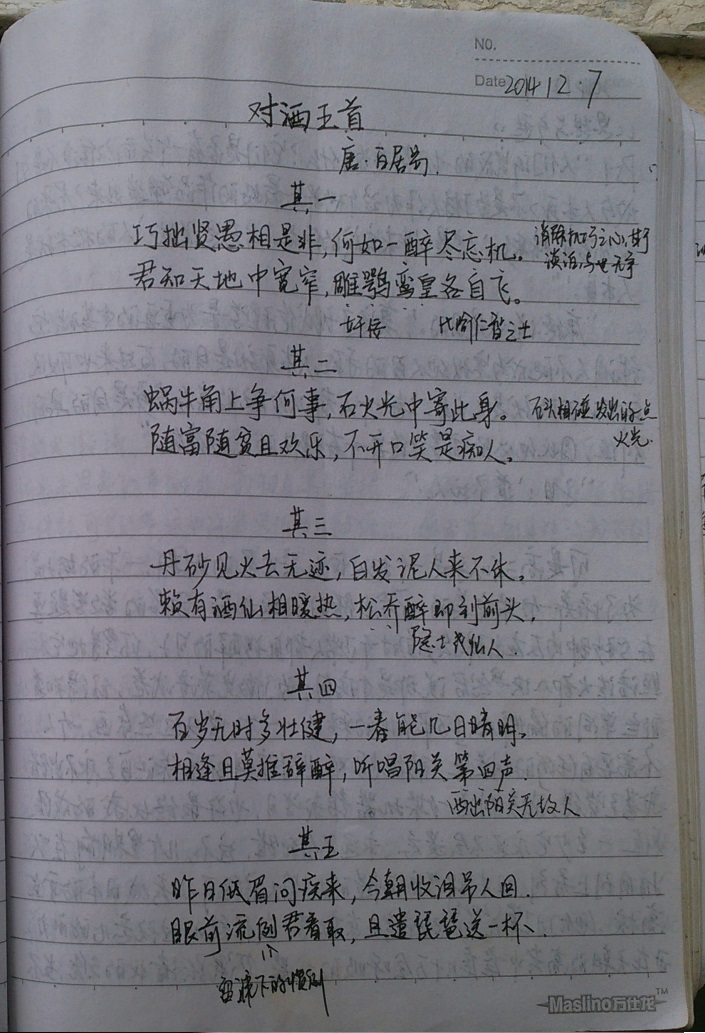 NO.
Date 2014 12 7
对酒五首
唐·白居易.
其一
巧拙贤愚相是非,何如一醉尽忘机。 消除机巧之心,甘于
君知天地中宽窄,雕鹗鸾皇各自飞。 淡泊,与世无争
奸佞 比喻仁智之士
其二
蜗牛角上争何事,石火光中寄此身。 石头相碰发出的点
随富随贫且欢乐,不开口笑是痴人。 火光.
其三
丹砂见火去无迹,白发泥人来不休。
赖有酒仙相暖热,松乔醉即到前头。
隐士或仙人.
其四
百岁无时多壮健,一春能几日晴明。
相逢且莫推辞醉,听唱阳关第四声.
西出阳关无故人
其五
昨日低眉问疾来,今朝收泪吊人回.
眼前流例君看取,且遣琵琶送一杯、
留流下的惯例
Maslino万仕龙 TM